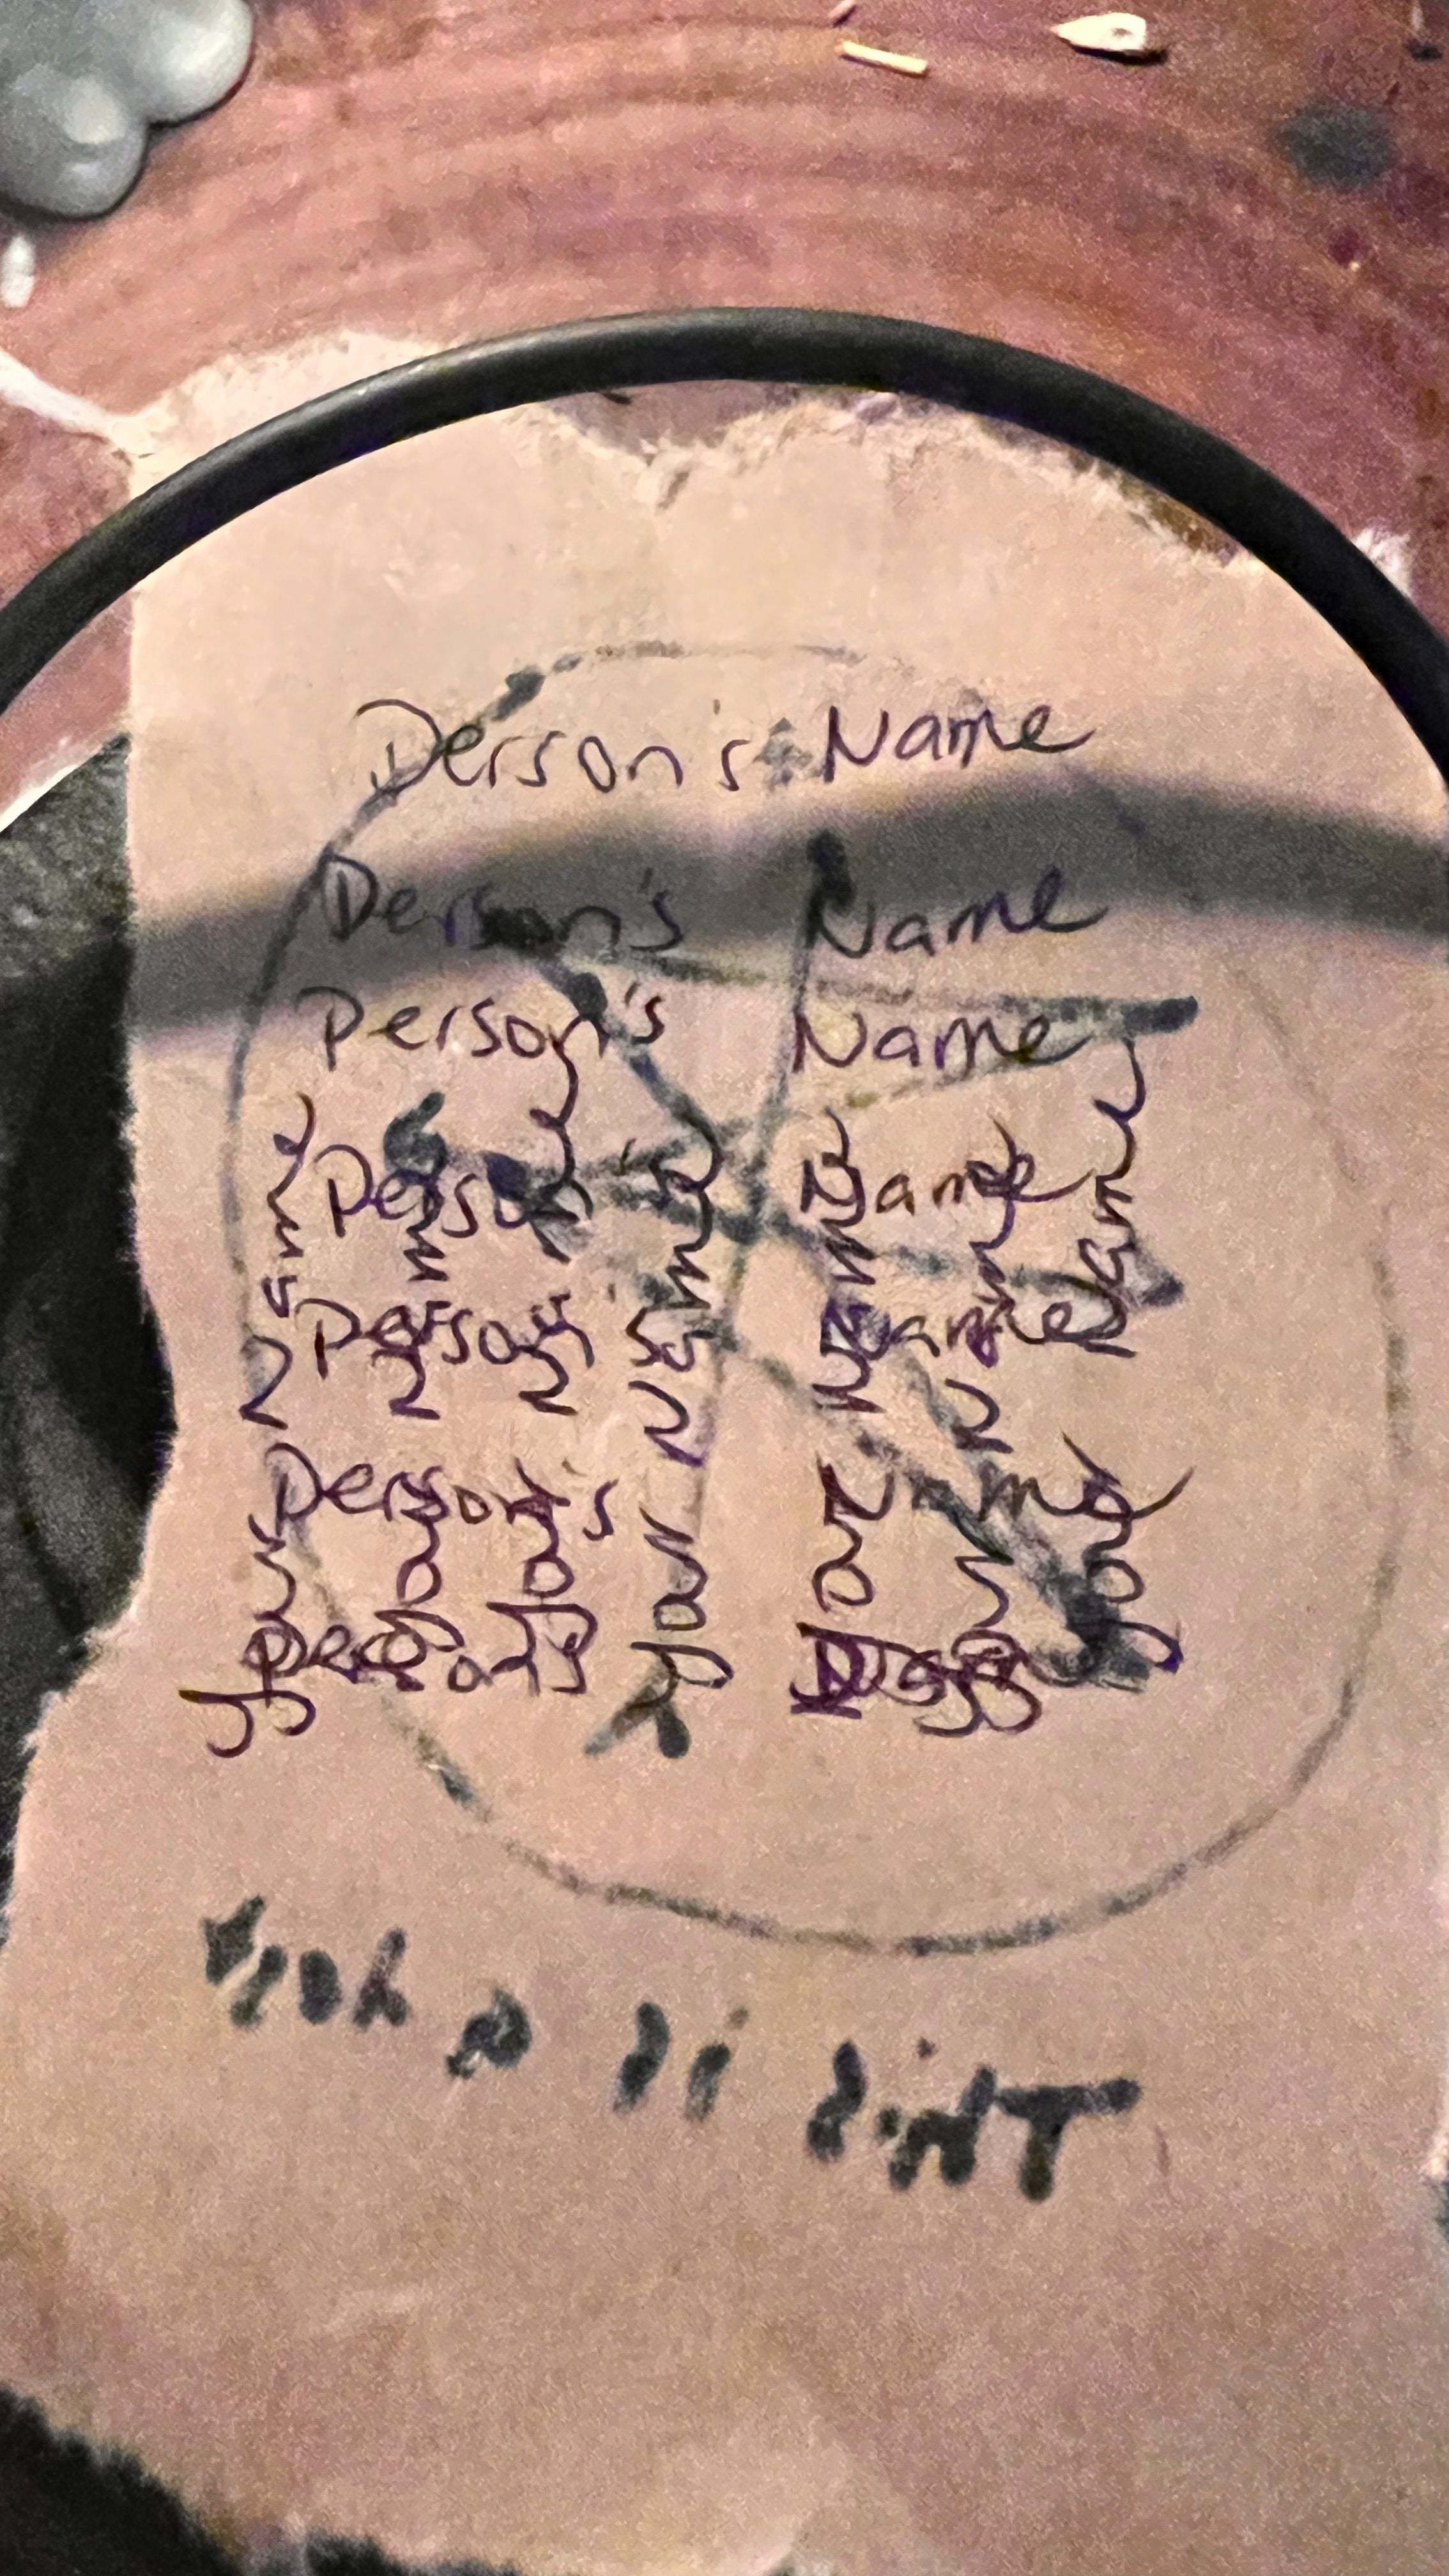 Person's Name
Person's Name
Person's Name
Person's Name
Person's Name
Person's Name
Person's Name
Your Name
Your Name
Your Name
Your Name
Your Name
Your Name
Your Name